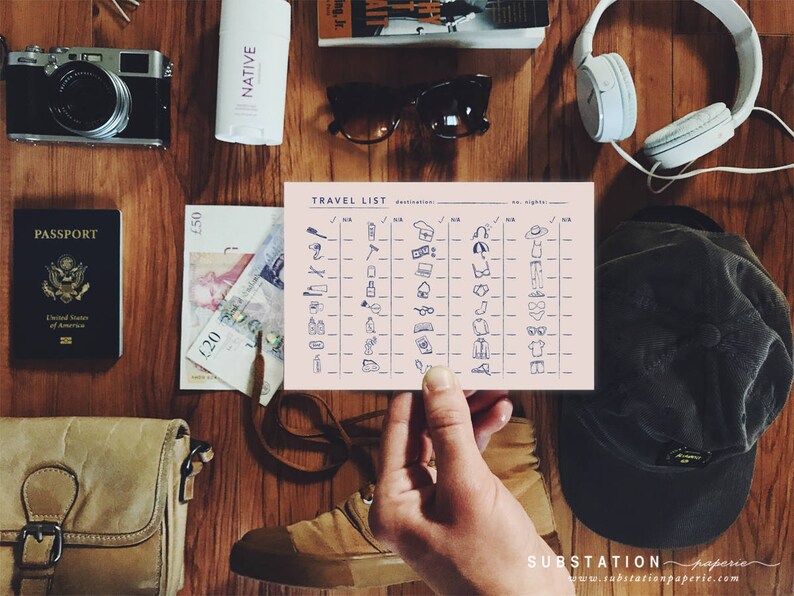 NATIVE
ng, Jr.
WHY
WAIT
£50
PASSPORT
United States
of America
£20
TRAVEL LIST destination: no. nights:
✓ N/A ✓ N/A ✓ N/A ✓ N/A ✓ N/A
SUBSTATION paperie
www.substationpaperie.com